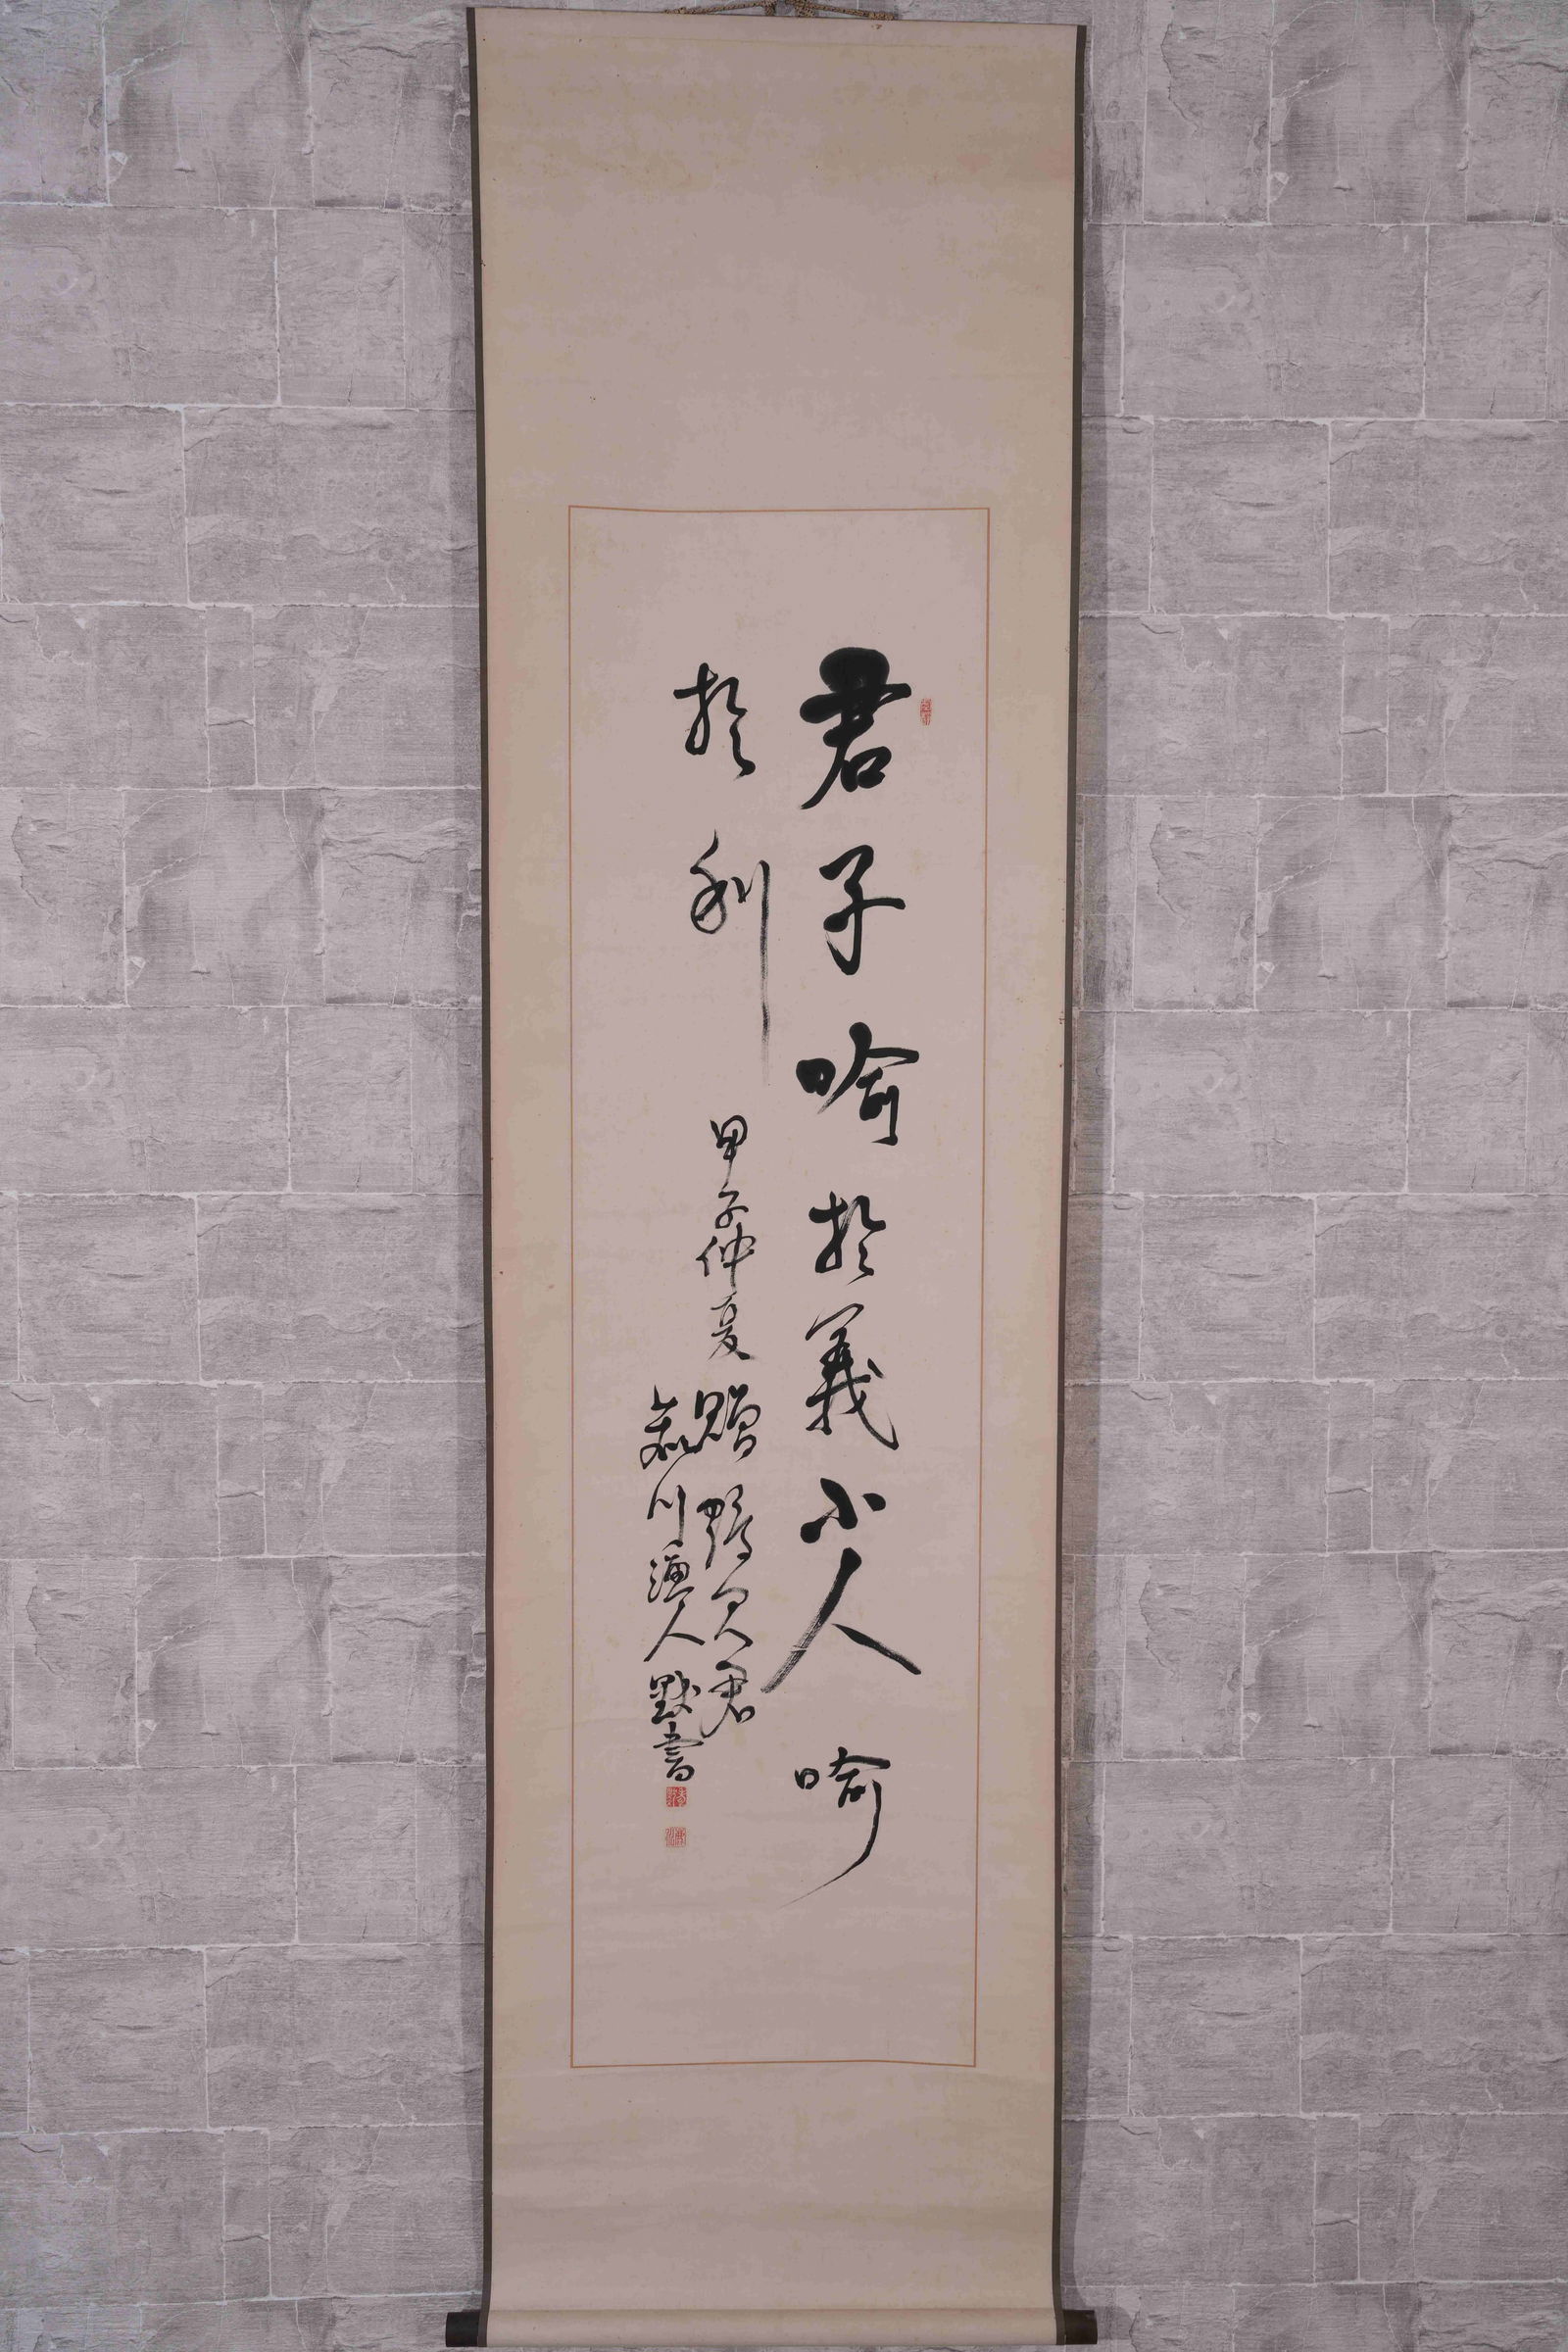 君子喻於義小人喻
於利
甲子仲夏 贈 君
川漁人 默書